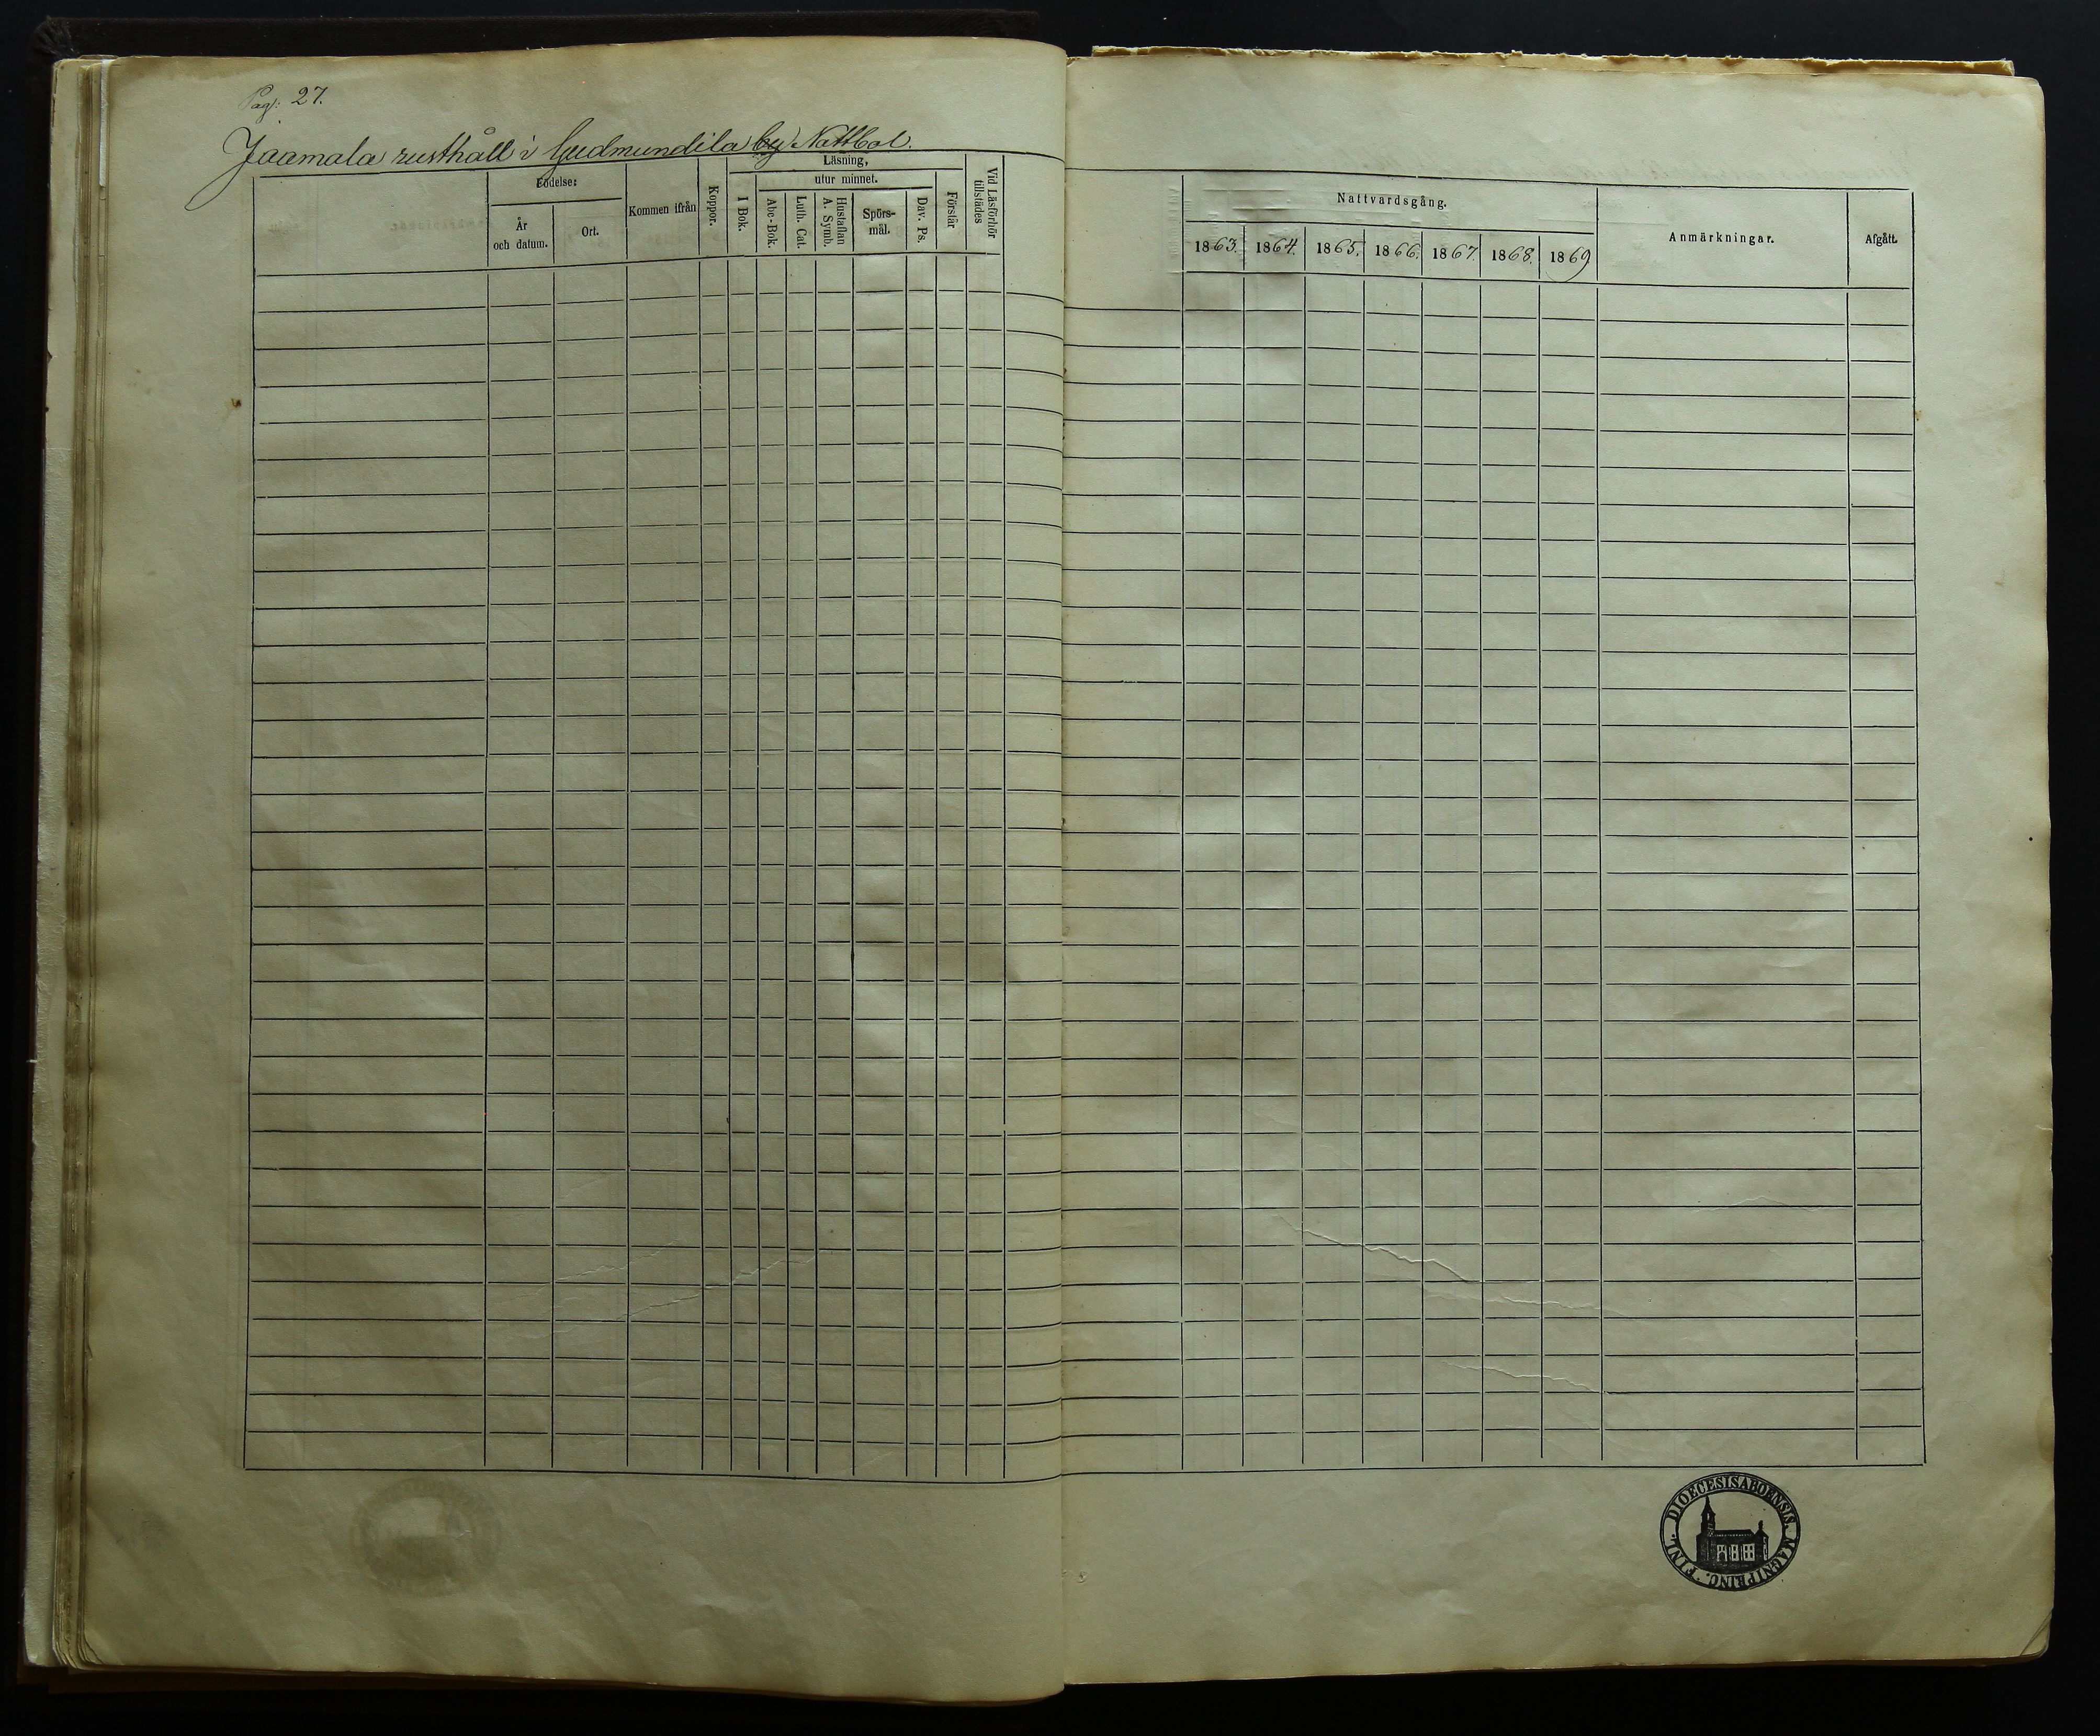 Pag: 27.
Jaamala rusthåll i Gudmundila by Nattbol.
Födelse:
År
och datum.
Ort.
Kommen ifrån
Koppor.
Läsning,
I Bok.
utur minnet.
Abc-Bok.
Luth. Cat.
Hustaflan
A. Symb.
Spörs-
mål.
Dav. Ps.
Förstår
Vid Läsförhör
tillstädes
Nattvardsgång.
1863. 1864. 1865. 1866. 1867. 1868. 1869
Anmärkningar.
Afgått.
DIOECESIS ABOENSIS. MAGNI PRINC. FINL.